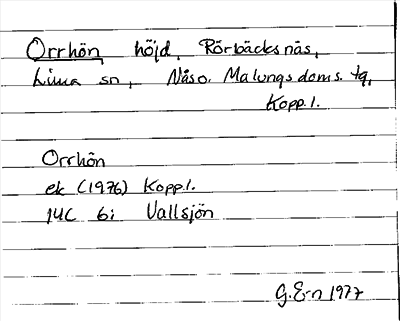 Orrhön, höjd, Rörbäcksnäs,
Lima sn, Nås o. Malungs doms. tg,
Kopp.l.
Orrhön
ek (1976) Kopp.l.
14C 6i Vallsjön
G.E-n 1977